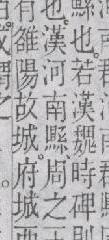 縣也。若漢魏時碑則
也。漢河南縣。周之
有雒陽故城。府城
謂之